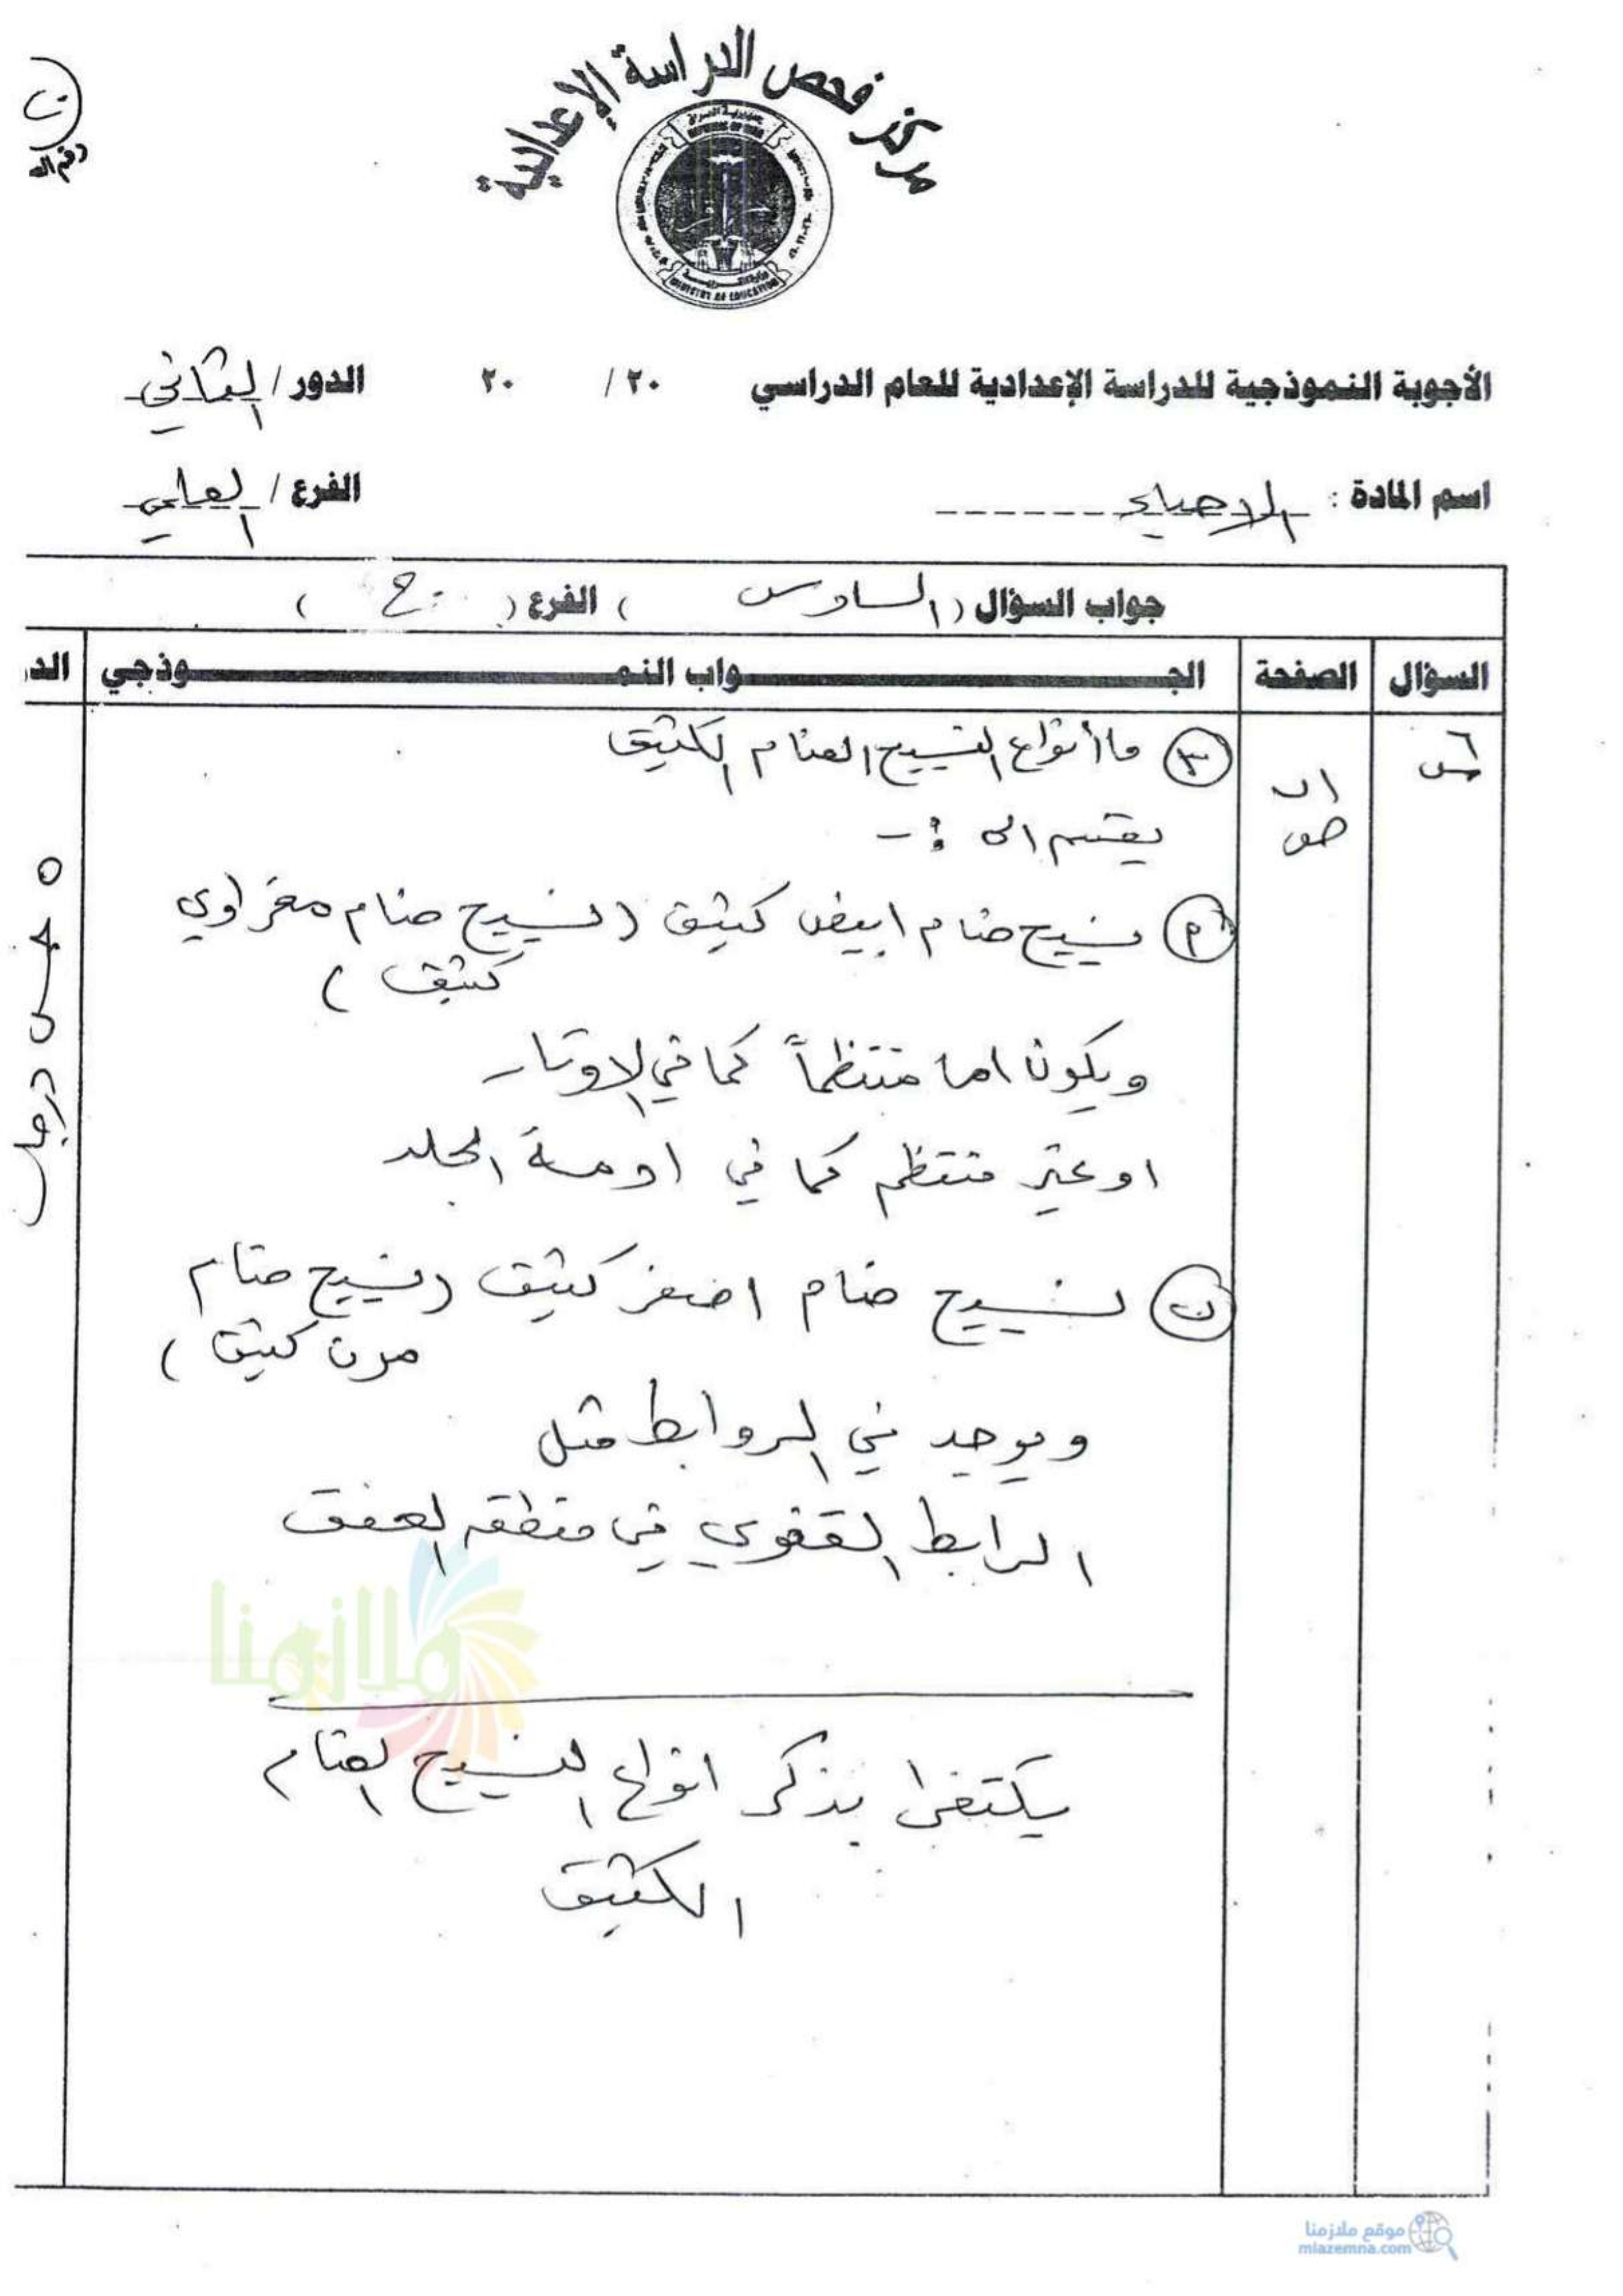 مركز فحص الدراسة الإعدادية
REPUBLIC OF IRAQ
MINISTRY OF EDUCATION
الأجوبة النموذجية للدراسة الإعدادية للعام الدراسي ٢٠ / ٢٠ الدور / الثاني
اسم المادة : الاحياء الفرع / العلمي
جواب السؤال ( السادس ) الفرع ( ج )
السؤال الصفحة الجـواب النمـوذجي الد
س٦
٣ ما أنواع النسيج الضام الكثيف
يقسم الى :-
أ نسيج ضام ابيض كثيف ( نسيج ضام مغراوي
كثيف )
ويكون اما منتظماً كما في الاوتار
او غير منتظم كما في ادمة الجلد
ب نسيج ضام اصفر كثيف ( نسيج ضام
مرن كثيف )
ويوجد في الروابط مثل
الرابط القفوي في منطقة العنق
يكتفى بذكر انواع النسيج الضام
الكثيف
٥
خمس درجات
ملازمنا
موقع ملازمنا
mlazemna.com